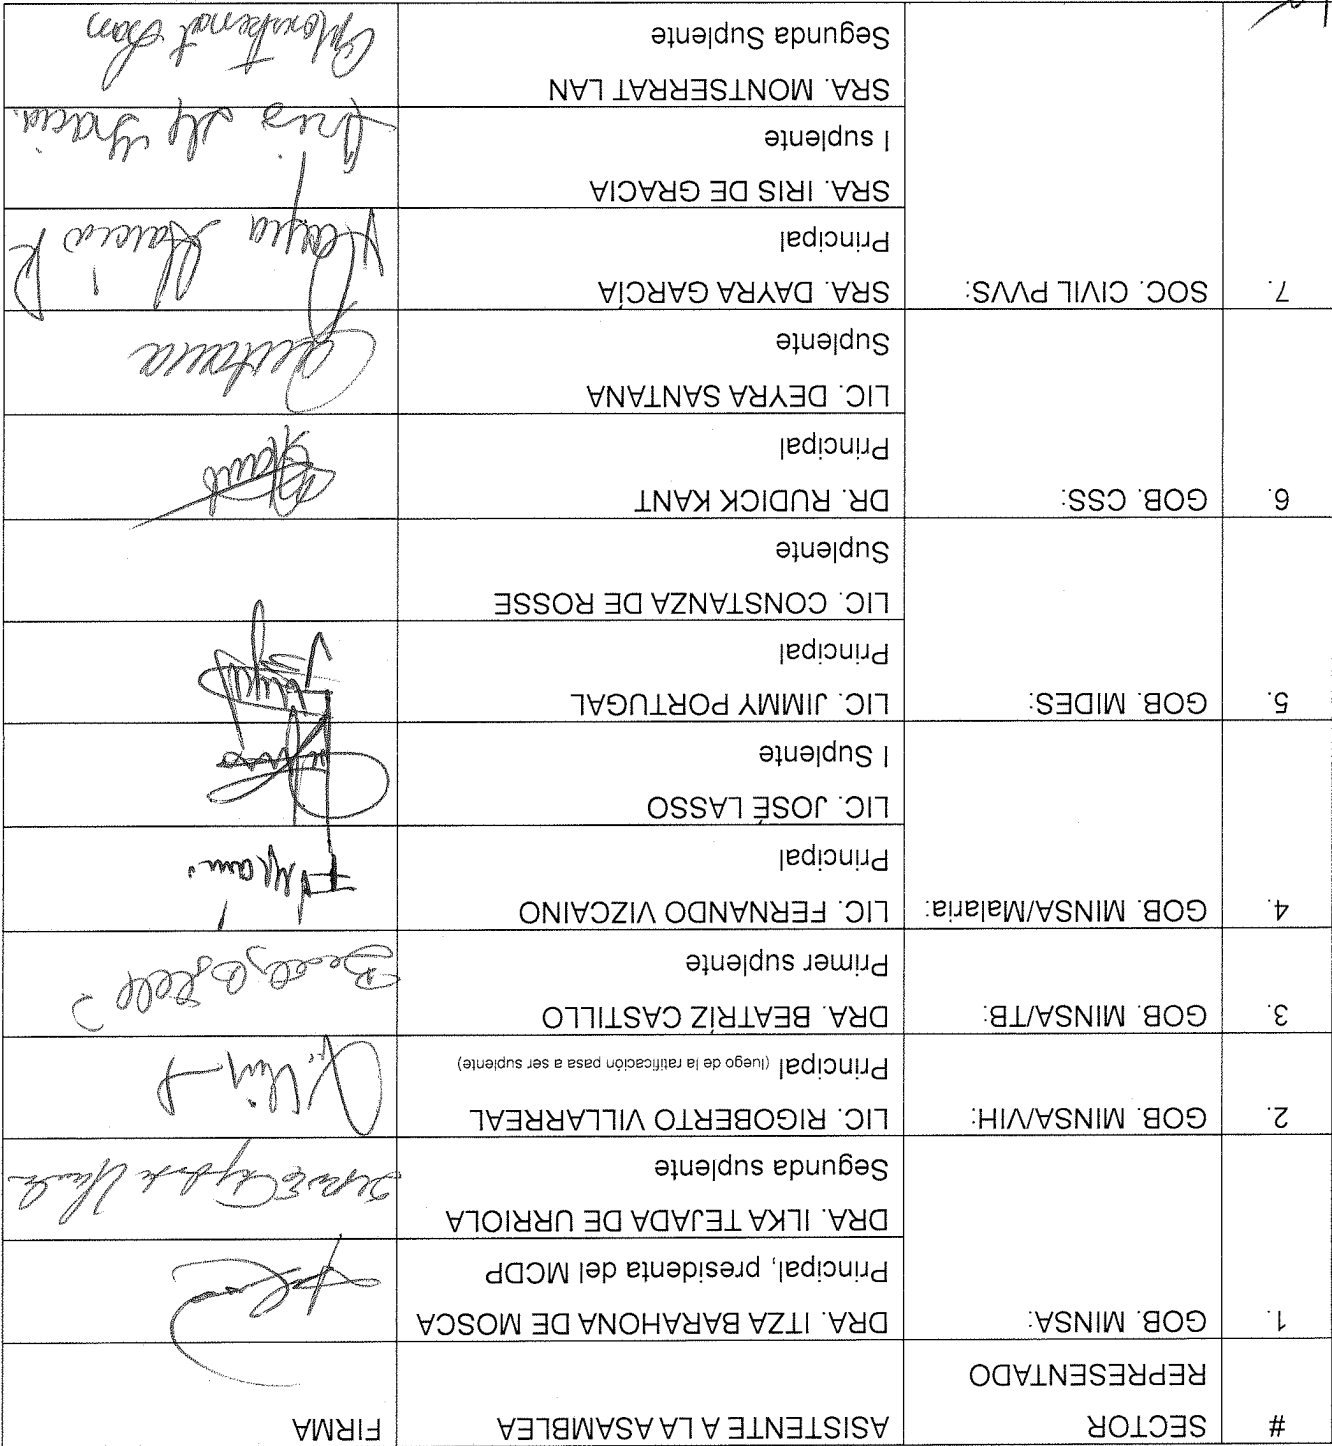 # SECTOR REPRESENTADO ASISTENTE A LA ASAMBLEA FIRMA
1. GOB. MINSA: DRA. ITZA BARAHONA DE MOSCA
Principal, presidenta del MCDP
DRA. ILKA TEJADA DE URRIOLA
Segunda suplente
2. GOB. MINSA/VIH: LIC. RIGOBERTO VILLARREAL
Principal (luego de la ratificación pasa a ser suplente)
3. GOB. MINSA/TB: DRA. BEATRÍZ CASTILLO
Primer suplente
4. GOB. MINSA/Malaria: LIC. FERNANDO VIZCAINO
Principal
LIC. JOSÉ LASSO
I Suplente
5. GOB. MIDES: LIC. JIMMY PORTUGAL
Principal
LIC. CONSTANZA DE ROSSE
Suplente
6. GOB. CSS: DR. RUDICK KANT
Principal
LIC. DEYRA SANTANA
Suplente
Santana
7. SOC. CIVIL PVVS: SRA. DAYRA GARCÍA
Principal
Dayra García R
SRA. IRIS DE GRACIA
I suplente
Iris de Gracia.
SRA. MONTSERRAT LAN
Segunda Suplente
Montserrat Lan